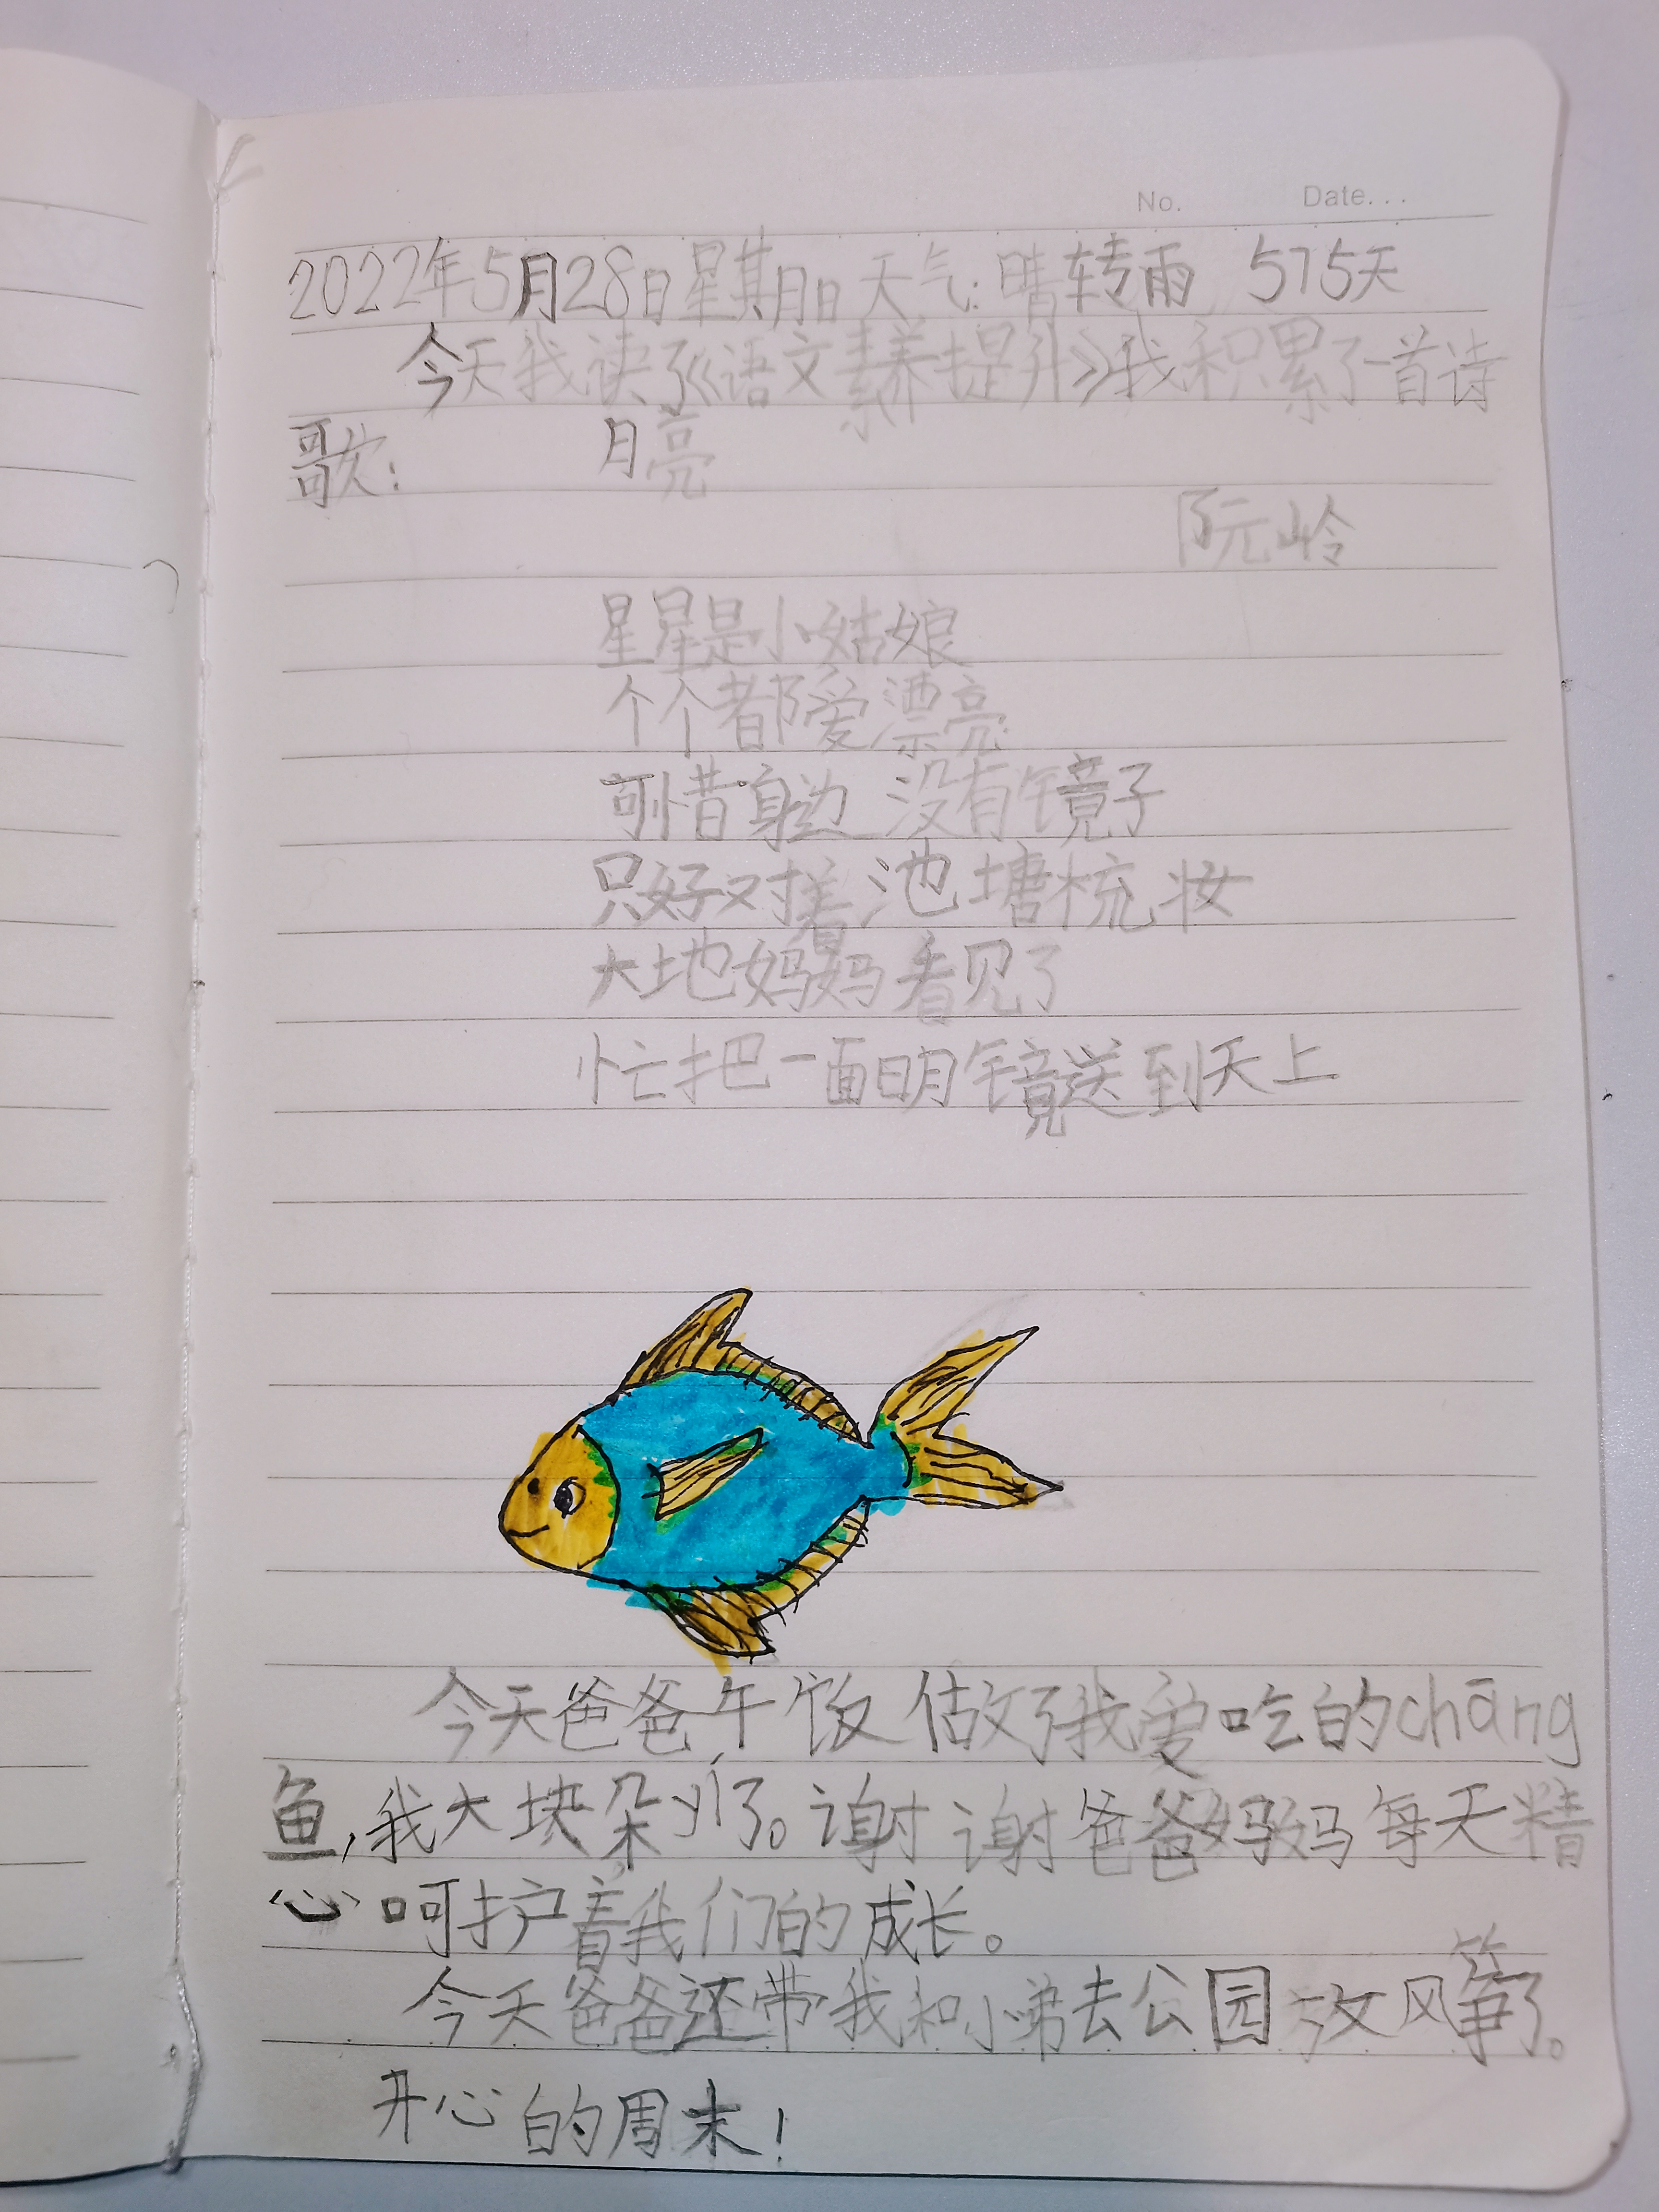 No. Date...
2022年5月28日星期日天气:晴转雨 575天
今天我读了《语文素养提升》我积累了一首诗
歌: 月亮
阮岭
星星是小姑娘
个个都爱漂亮
可惜身边没有镜子
只好对着池塘梳妆
大地妈妈看见了
忙把一面明镜送到天上
今天爸爸午饭做了我爱吃的chāng
鱼,我大块朵了。谢谢爸爸妈妈每天精
心呵护着我们的成长。
今天爸爸还带我和小弟去公园放风筝了。
开心的周末!